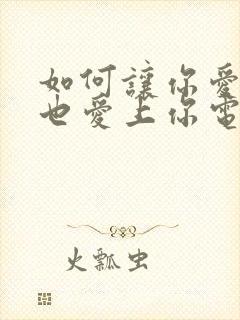 如何讓你愛
也愛上你電
火瓢虫